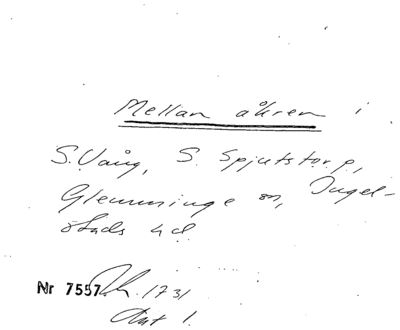 Mellan åkren i
S. Vång, S. Spjutstorp,
Glemminge sn, Ingel-
stads hd.
Nr 7557. 1731
Akt 1.